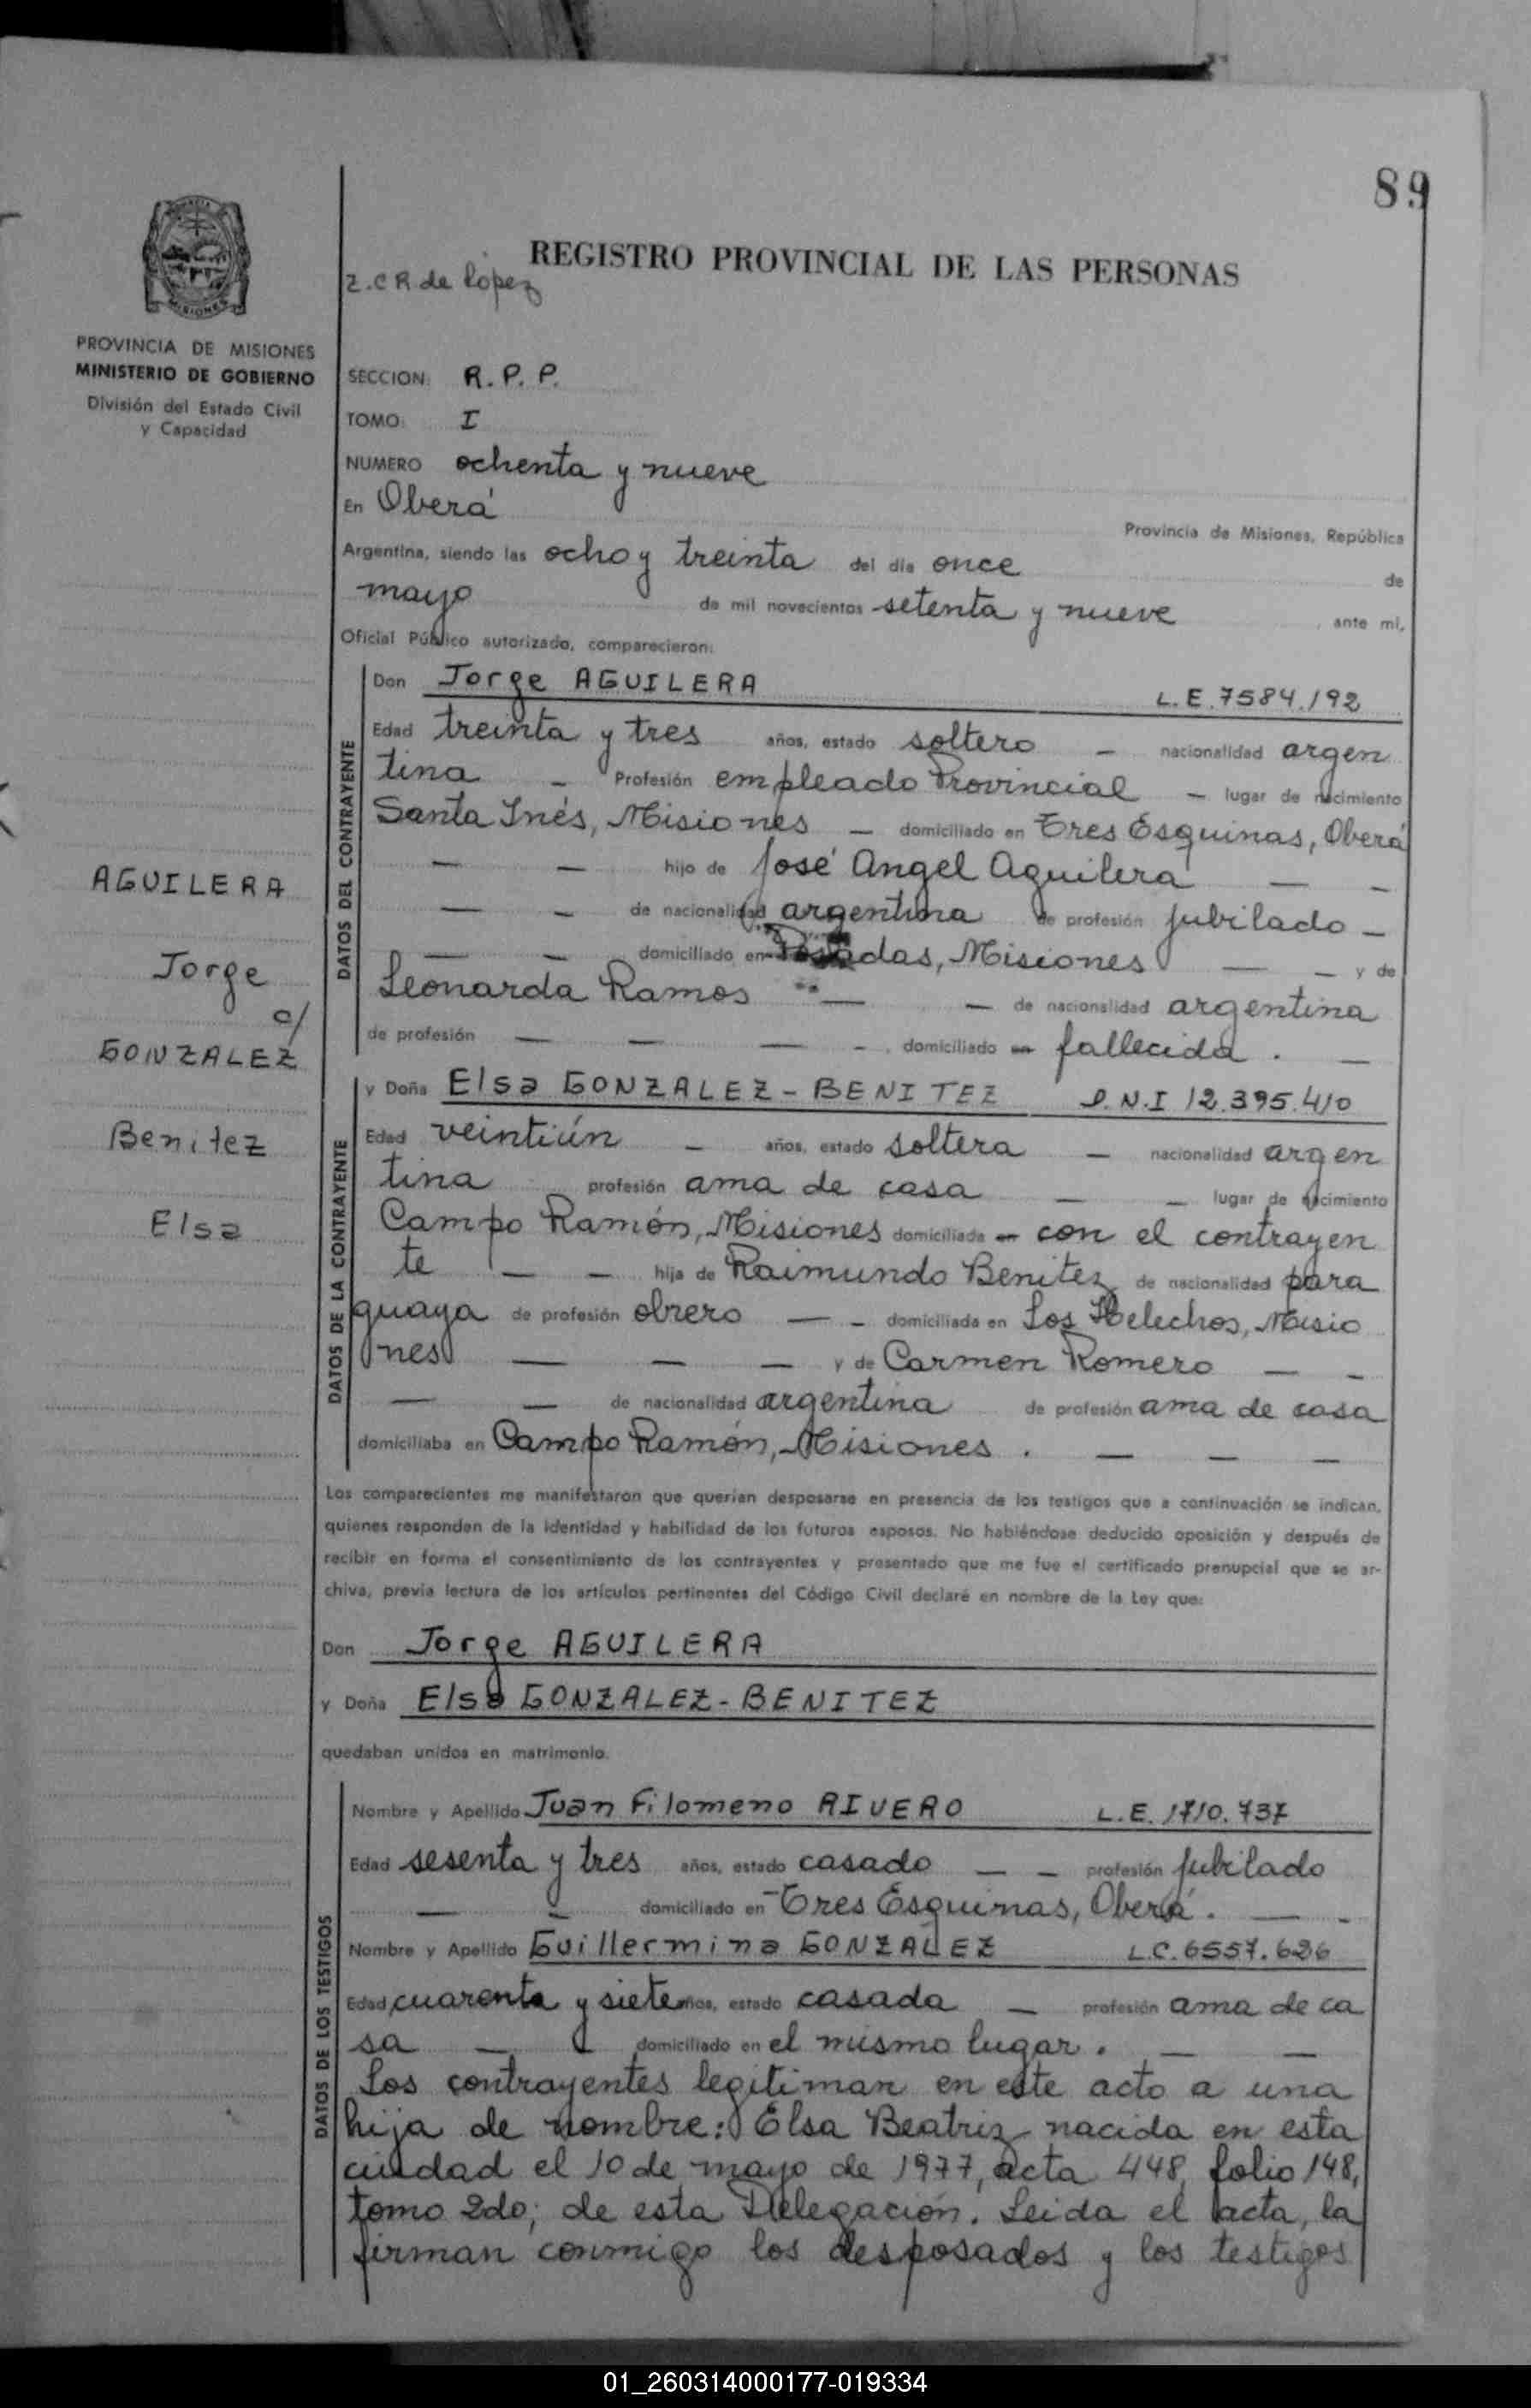 89
REGISTRO PROVINCIAL DE LAS PERSONAS
Z.C R de López
PROVINCIA DE MISIONES
MINISTERIO DE GOBIERNO
División del Estado Civil
y Capacidad
SECCION: R. P. P.
TOMO: I
NUMERO ochenta y nueve
En Oberá Provincia de Misiones, República
Argentina, siendo las ocho y treinta del día once de
mayo de mil novecientos setenta y nueve ante mí,
Oficial Público autorizado, comparecieron:
DATOS DEL CONTRAYENTE
Don Jorge AGUILERA L.E. 7584.192
Edad treinta y tres años, estado soltero — nacionalidad argen
tina — Profesión empleado Provincial — lugar de nacimiento
Santa Inés, Misiones — domiciliado en Tres Esquinas, Oberá
— — hijo de José Angel Aguilera — —
— — de nacionalidad argentina de profesión jubilado —
— — domiciliado en Posadas, Misiones — — y de
Leonarda Ramos — — de nacionalidad argentina
de profesión — — — — domiciliado en fallecida . —
AGUILERA
Jorge
c/
GONZALEZ
Benitez
Elsa
DATOS DE LA CONTRAYENTE
y Doña Elsa GONZALEZ - BENITEZ D.N.I 12.395.410
Edad veintiún — años, estado soltera — nacionalidad argen
tina profesión ama de casa — — lugar de nacimiento
Campo Ramón, Misiones domiciliada en con el contrayen
te — — hija de Raimundo Benitez de nacionalidad para
guaya de profesión obrero — — domiciliada en Los Helechos, Misio
nes — — — y de Carmen Romero — —
— — de nacionalidad argentina de profesión ama de casa
domiciliaba en Campo Ramón, Misiones . — — —
Los comparecientes me manifestaron que querían desposarse en presencia de los testigos que a continuación se indican,
quienes responden de la identidad y habilidad de los futuros esposos. No habiéndose deducido oposición y después de
recibir en forma el consentimiento de los contrayentes y presentado que me fue el certificado prenupcial que se ar-
chiva, previa lectura de los artículos pertinentes del Código Civil declaré en nombre de la Ley que:
Don Jorge AGUILERA
y Doña Elsa GONZALEZ - BENITEZ
quedaban unidos en matrimonio.
DATOS DE LOS TESTIGOS
Nombre y Apellido Juan Filomeno RIVERO L.E. 1710.737
Edad sesenta y tres años, estado casado — — profesión jubilado
— — domiciliado en Tres Esquinas, Oberá . — —
Nombre y Apellido Guillermina GONZALEZ L.C. 6557.626
Edad cuarenta y siete años, estado casada — profesión ama de ca
sa — domiciliado en el mismo lugar . — —
Los contrayentes legitiman en este acto a una
hija de nombre: Elsa Beatriz nacida en esta
ciudad el 10 de mayo de 1977, acta 448, folio 148,
tomo 2do; de esta Delegación. Leida el acta, la
firman conmigo los desposados y los testigos
01_260314000177-019334